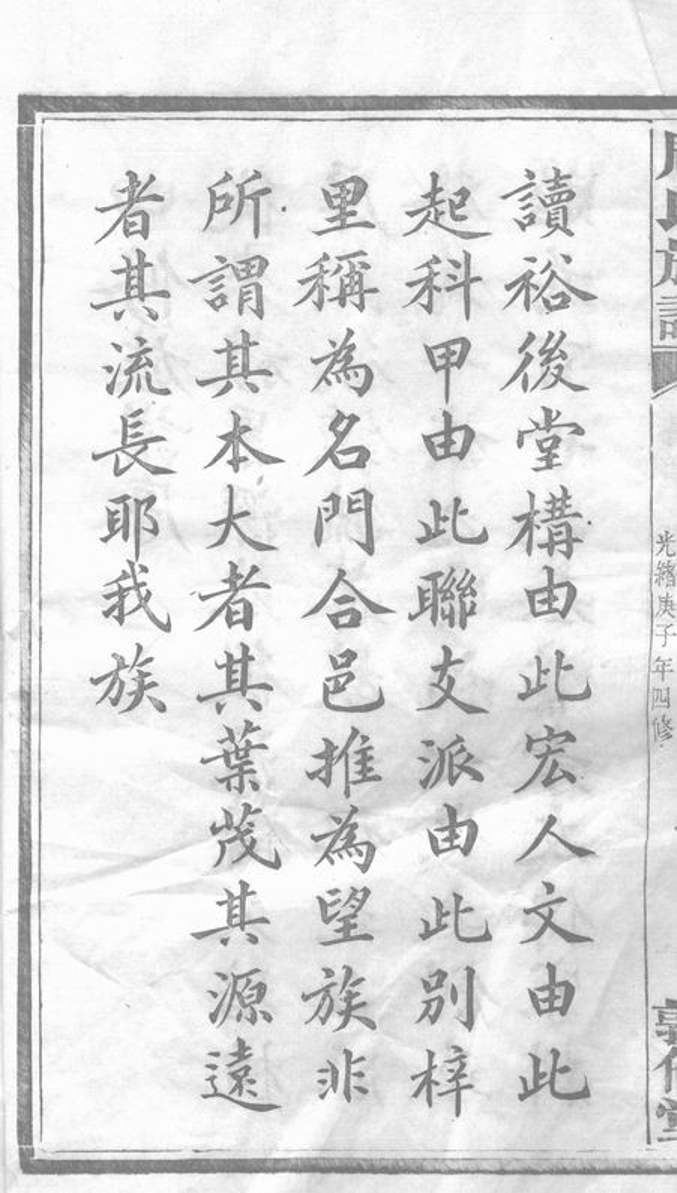 光緒庚子年四修
讀裕後堂構由此宏人文由此
起科甲由此聯支派由此別梓
里稱為名門合邑推為望族非
所謂其本大者其葉茂其源遠
者其流長耶我族